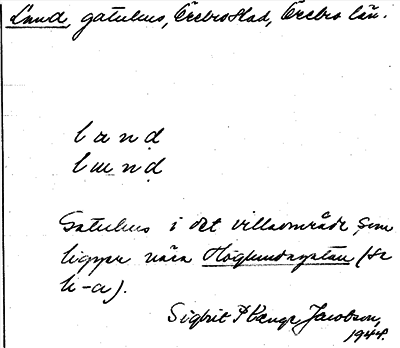 Lund, gatuhus, Örebro stad, Örebro län.
l a n d
l u n d
Gatuhus i det villaområde som
ligger nära Höglundagatan (se
h-a).
Sigbrit Plænge Jacobson,
1944.